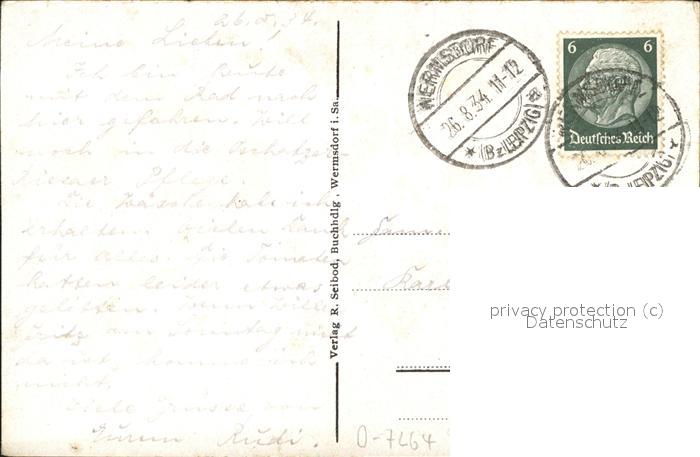 26.8.34.
Meine Lieben!
Ich bin heute
mit dem Rad nach
hier gefahren. Will
noch in die Oschatzer
Pflege.
Die Wäsche habe ich
erhalten. Vielen Dank
für alles. Die Tomaten
hatten leider etwas
gelitten. Wenn
Fritz am Sonntag nicht
da ist, komme ich
nicht.
Viele Grüsse von
Eurem Rudi.
Verlag R. Seibod, Buchhdlg., Wermsdorf i. Sa.
WERMSDORF
26.8.34. 11-12
* (Bz. LEIPZIG) a
6 6
Deutsches Reich
LEIPZIG) *
privacy protection (c)
Datenschutz
O-7264